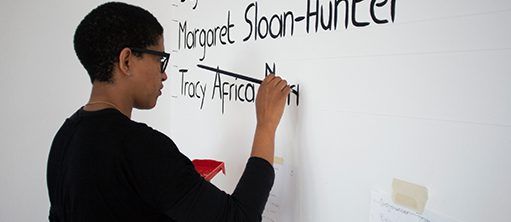 Margaret Sloan-Hunter
Tracy Africa N